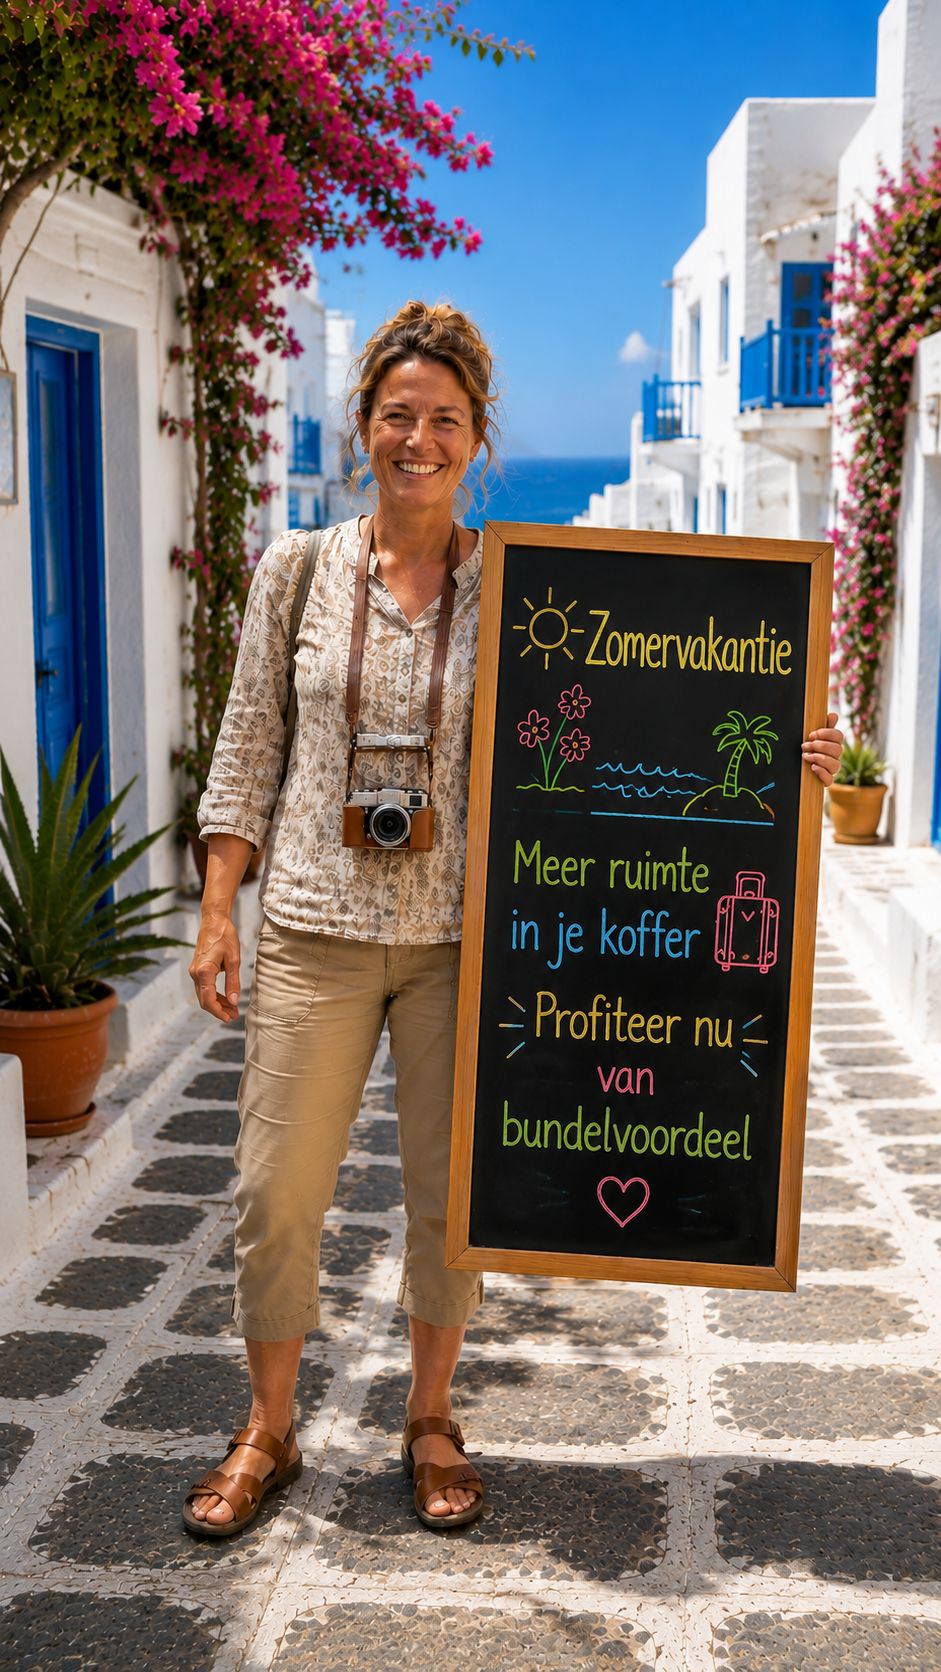 Zomervakantie
Meer ruimte
in je koffer
Profiteer nu
van
bundelvoordeel